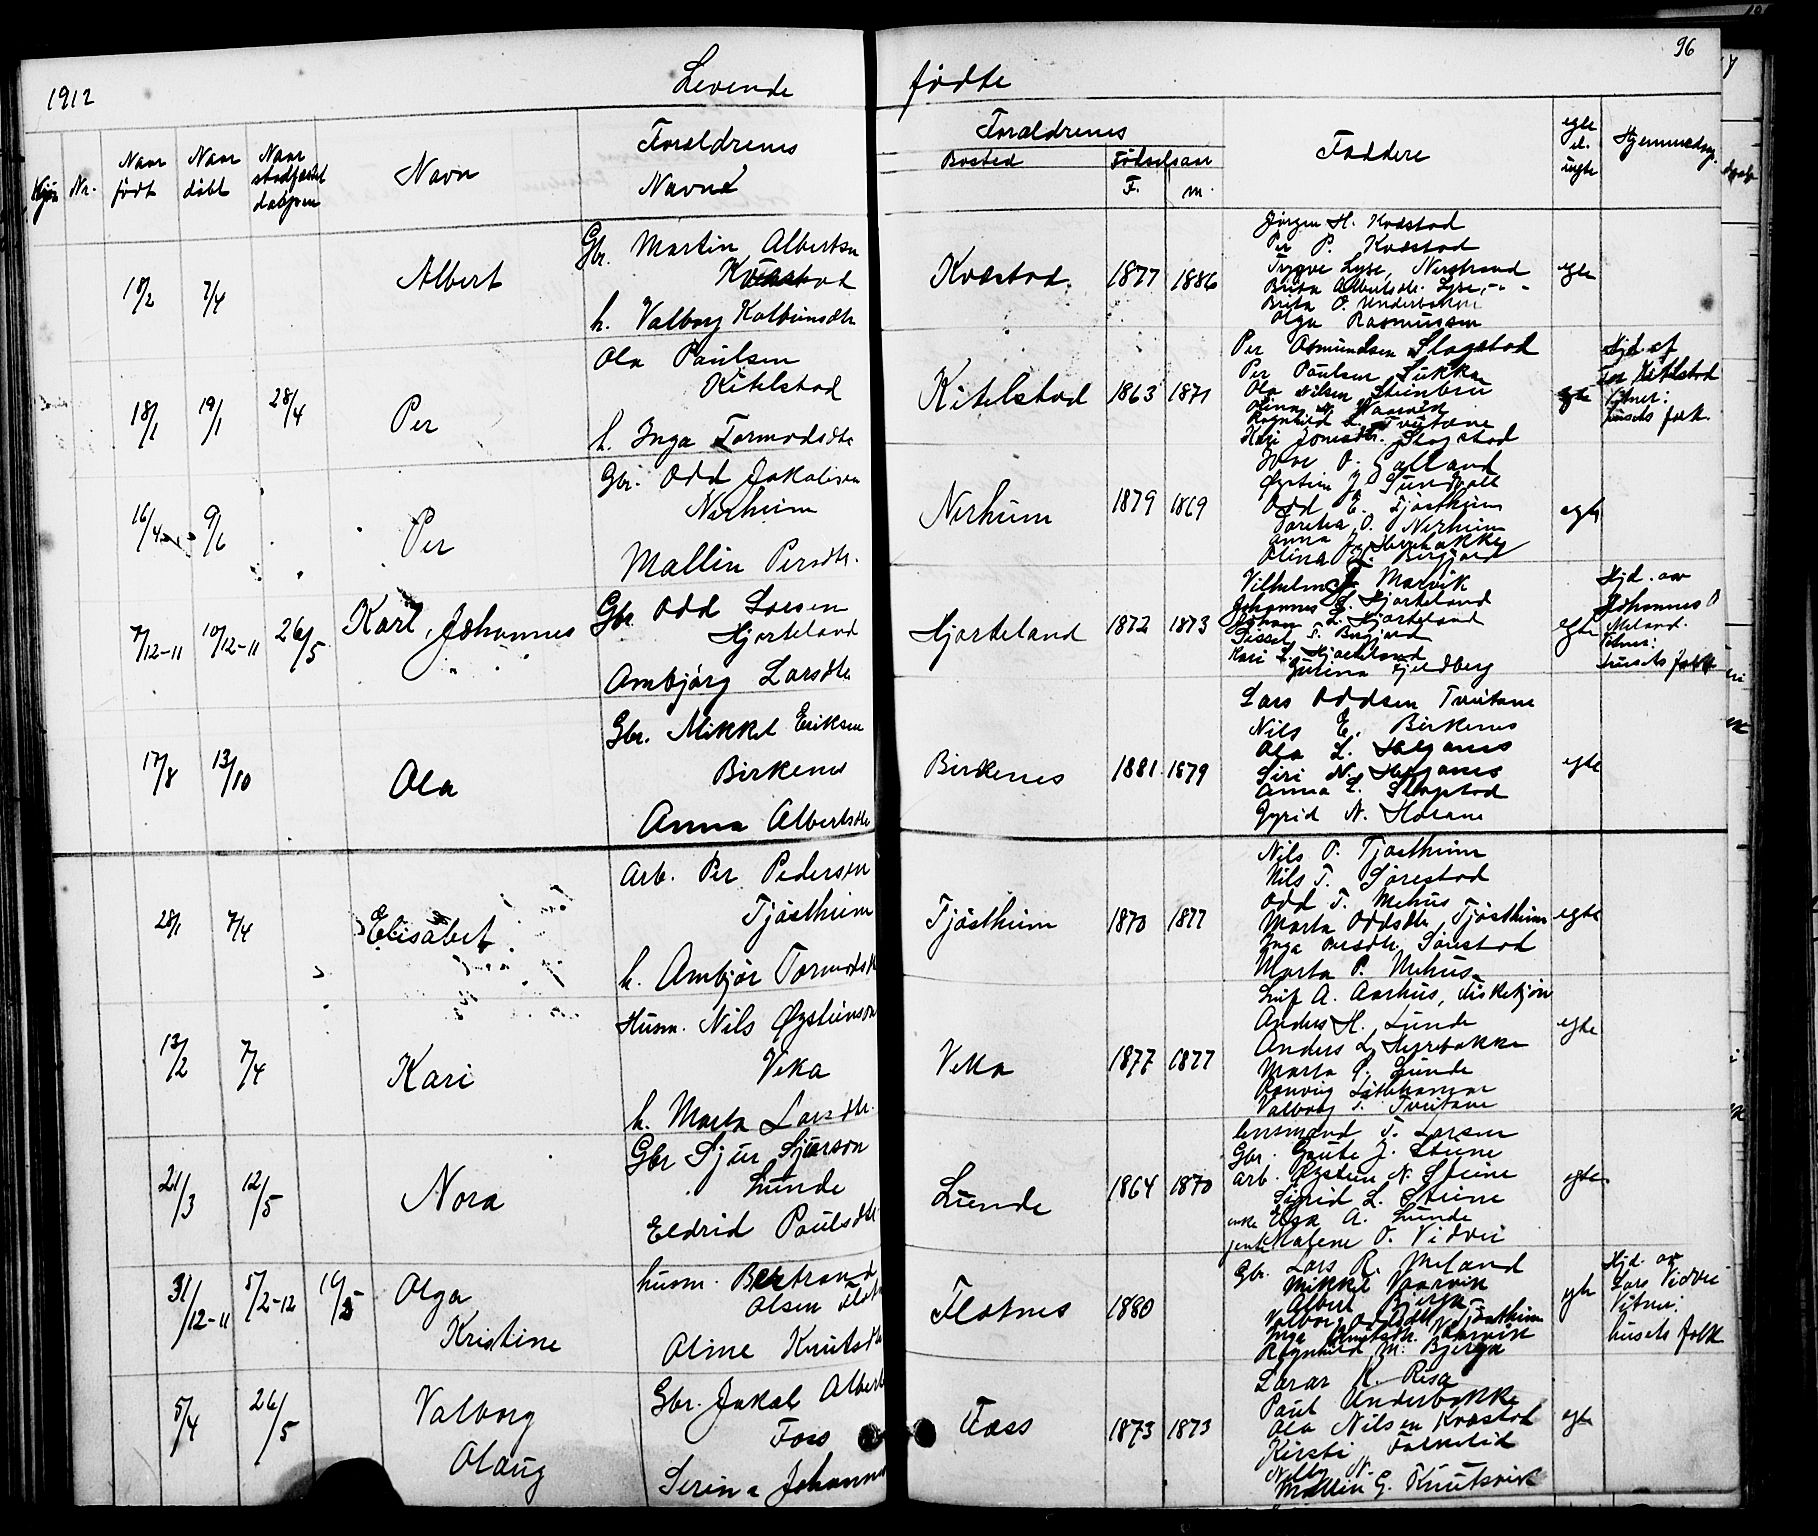 1912
Levende
fødte
96
Kjøn
Nr.
Naar født
Naar døbt
Naar stadfæstet daapen
Navn
Forældrenes Navne
Forældrenes
Bosted
Fødselsaar
F.
m.
Faddere
egte el. uegte
Hjemmedaap.
18/2
7/4
Albert
Gbr. Martin Albertsen
Kvæstad
h. Valborg Kolbeinsdtr
Kvæstad
1877
1886
Jørgen H. Kvæstad
Per P. Kvæstad
Trygve Lyse, Nerstrand
Brita Albertsdtr. Lyse, - " -
Brita O. Underbakke
Olga Rasmussen
egte
18/1
19/1
28/4
Per
Ola Paulsen
Kitelstad
h. Inga Tormodsdtr
Kitelstad
1863
1871
Per Osmundsen Slogstad
Per Paulsen Sukka
Ola Nilsen Steinbru
Ragnhild L. Tveitane
Kari Jonsdtr. Slogstad
egte
Hjd. af
Tor Kitelstad
Vitner:
husets folk
16/4
9/6
Per
Gbr. Odd Jakobsen
Nerheim
Mallin Persdtr.
Nerheim
1879
1869
Iver O. Galland
Øystein J. Sundvall
Odd E. Tjøstheim
Toretea O. Nerheim
Anna J. Herrabakke
Olina P. Bergjord
egte
7/12-11
10/12-11
26/5
Karl Johannes
Gbr. Odd Larsen
Hjorteland
Ambjørg Larsdtr
Hjorteland
1872
1873
Vilhelm J. Marvik
Johannes L. Hjorteland
Johan L. Hjorteland
Sissel T. Bergjord
Kari L. Hjorteland
Gurina Fjeldberg
egte
Hjd. av
Johannes O
Meland.
Vitner:
husets folk
17/8
13/10
Ola
Gbr. Mikkel Eriksen
Birkenes
Anna Albertsdtr
Birkenes
1881
1879
Lars Oddsen Tveitane
Nils E. Birkenes
Ola L. Helganes
Siri N. Helganes
Anna L. Slogstad
Gyrid N. Horane
egte
28/1
7/4
Elisabet
Arb. Per Pedersen
Tjøstheim
h. Ambjør Tormodsdtr
Tjøstheim
1870
1877
Nils P. Tjøstheim
Nils T. Sørestad
Odd T. Mehus
Marta Oddsdtr Tjøstheim
Inga Persdtr. Sørestad
Marta P. Mehus
egte
13/2
7/4
Kari
Husm. Nils Øysteinson
Veka
h. Marta Larsdtr.
Veka
1877
1877
Leif A. Aarhus, diskekjøn
Anders H. Lunde
Anders L. Herrebakke
Marta S. Lunde
Ranveig Litlehamar
Valborg T. Tveitane
egte
21/3
12/5
Nora
Gbr Sjur Sjurson
Lunde
Eldrid Paulsdtr
Lunde
1864
1870
Lensmand T. Larsen
Gbr. Gaute J. Steine
Arb. Øystein N. Steine
Sigrid L. Steine
enke Elsa A. Lunde
jente Malene O. Vidvei
egte
31/12-11
5/2-12
16/5
Olga
Kristine
husm. Bertrand
Olsen Flotnes
Oline Knutsdtr
Flotnes
1880
Gbr. Lars R. Meland
Mikkel Vaarvik
Albert Bjerga
Valborg Oddsdtr Tjøstheim
Inga Knutsdtr. Vaarvik
Ragnhild M. Bjerga
egte
Hjd. av
Lars Vidvei
Vitner:
husets folk
5/4
26/5
Valborg
Olaug
Gbr. Jakob Alberts
Foss
Serina Johannes
Foss
1873
1873
Larar K. Risa
Paul Underbakke
Ola Nilsen Kvæstad
Kirsti Falkelid
Nelly N.
Mallin G. Knutsvik
egte